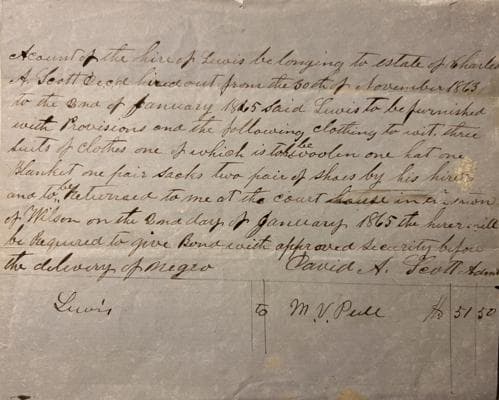 Acount of the hire of Lewis belonging to estate of Charles
A. Scott Decd hired out from the 30th of November 1863
to the 2nd of January 1865 Said Lewis to be furnished
with Provisions and the following clothing to wit. three
suits of clothes one of which is to be woolen one hat one
Blanket one pair socks two pair of shoes by his hirer
and to be Returned to me at the court house in the town
of Wilson on the 2nd day of January 1865 the hirer will
be Required to give Bond with approved security before
the delivery of Negro David A. Scott Admr
Lewis to M. V. Peele $ 51 50